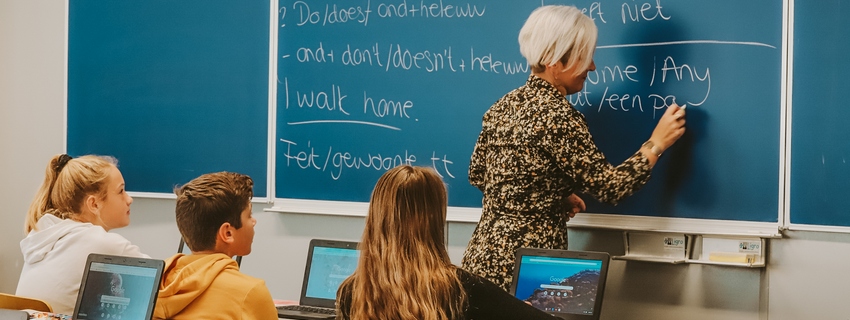 ? Do/doest ond+heleww
- ond+ don't/doesn't+heleww
I walk home.
Feit/gewoonte tt
niet
Some/Any
/een pa
Google